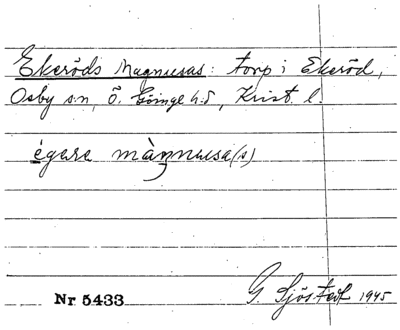 Ekeröds Magnusas: torp i Ekeröd,
Osby s:n, Ö. Göinge h:d, Krist. l.
ègara màgnusa(s)
Nr 5433
G. Sjöstedt 1945